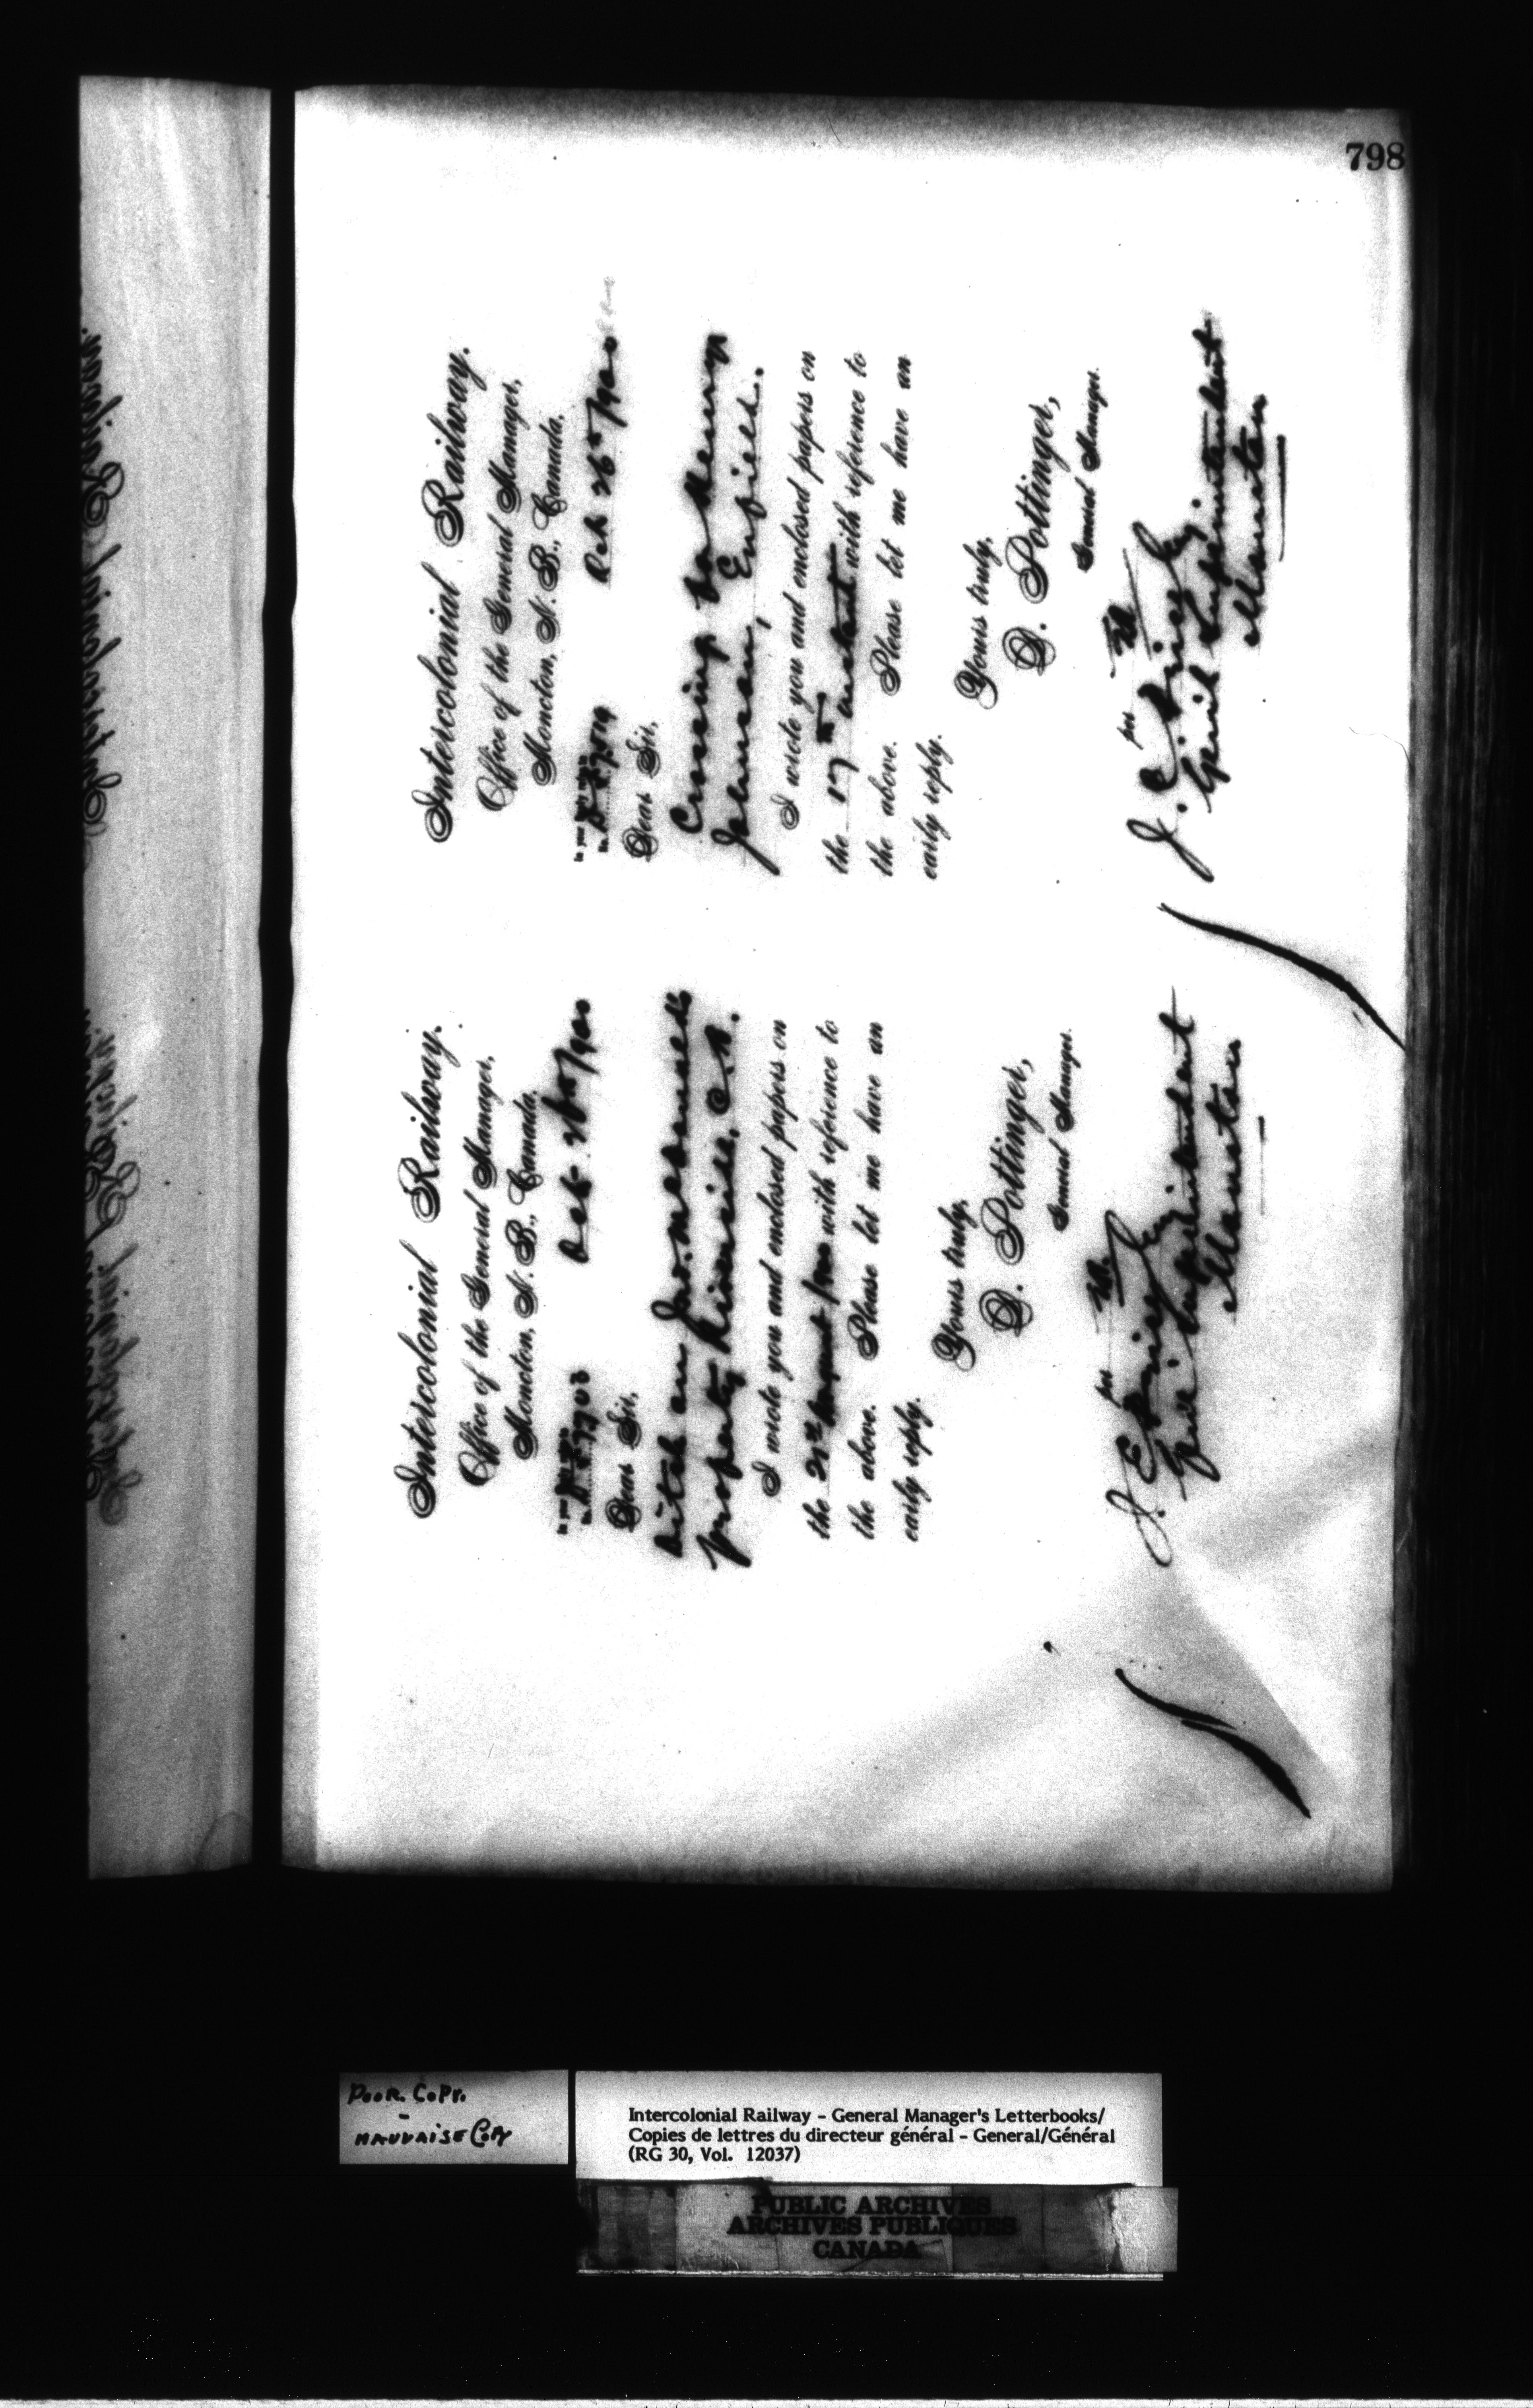 798
Intercolonial Railway.
Office of the General Manager,
Moncton, N. B., Canada,
Oct 26th 1900
In your Reply refer to
No.
Dear Sir,
Ditch on Jno. McDonald's
property Rivière, C.B.
I wrote you and enclosed papers on
the with reference to
the above. Please let me have an
early reply.
Yours truly,
D. Pottinger,
General Manager.
per
J. E. Price Esq.
Gen'l Superintendent
Moncton
Intercolonial Railway.
Office of the General Manager,
Moncton, N. B., Canada,
Oct 26th 1900
In your Reply refer to
No.
Dear Sir,
Crossing for Henry
Johnson, Enfield.
I wrote you and enclosed papers on
the 17th instant with reference to
the above. Please let me have an
early reply.
Yours truly,
D. Pottinger,
General Manager.
per
J. E. Price Esq.
Gen'l Superintendent
Moncton
POOR. COPY.
-
MAUVAISE COPY
Intercolonial Railway - General Manager's Letterbooks/
Copies de lettres du directeur général - General/Général
(RG 30, Vol. 12037)
PUBLIC ARCHIVES
ARCHIVES PUBLIQUES
CANADA